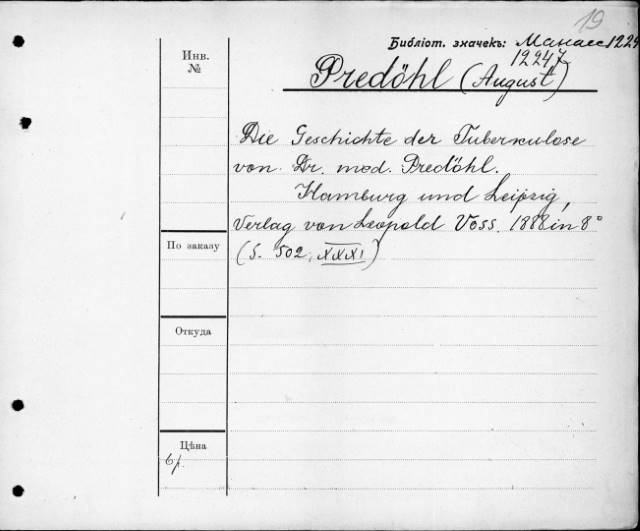 19
Библіот. значекъ: Манасс 1224
12247
Инв.
№
Predöhl (August)
Die Geschichte der Tuberkulose
von Dr. med. Predöhl.
Hamburg und Leipzig,
Verlag von Leopold Voss. 1888 in 8°
(S. 502, XXXI)
По заказу
Откуда
Цѣна
6 р.